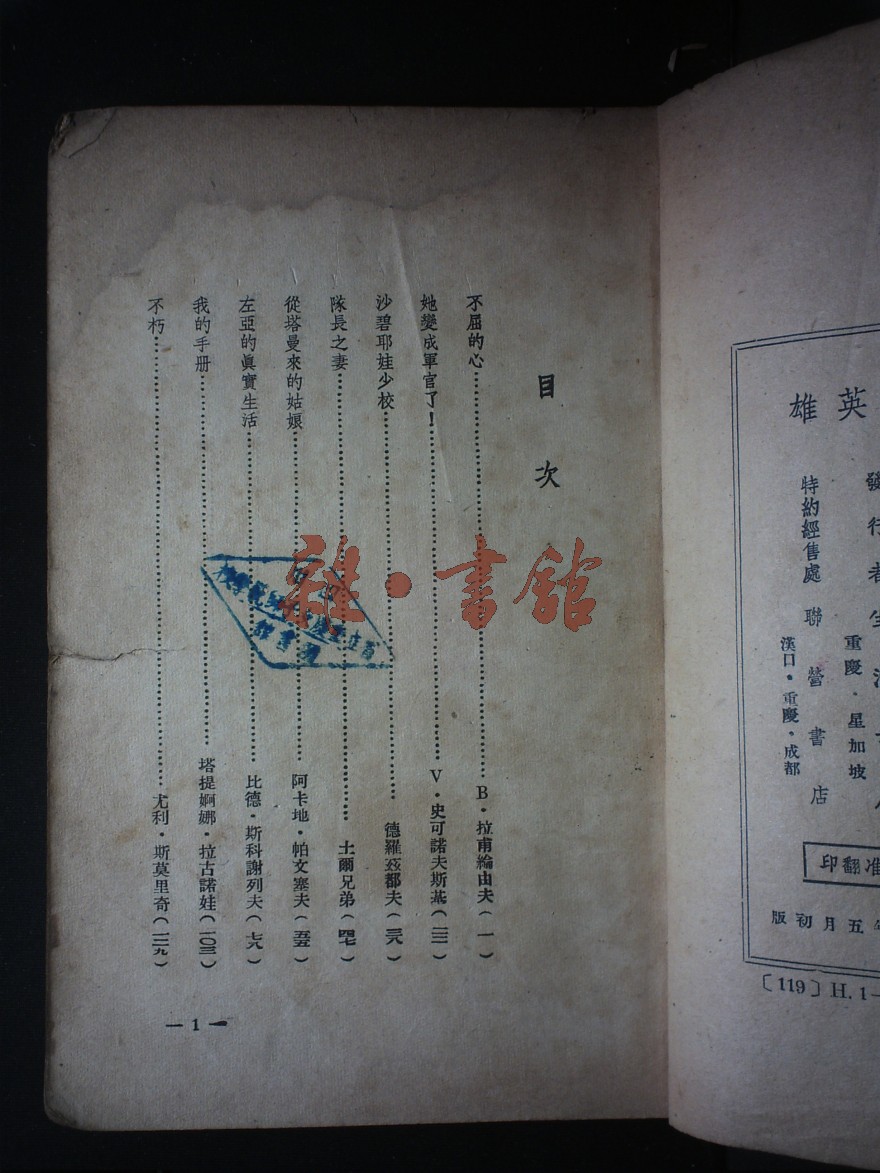 目次
不屈的心……B·拉甫綸由夫(一)
她變成軍官了!……V·史可諾夫斯基(二二)
沙碧耶娃少校……德羅茲都夫(三八)
隊長之妻……土爾兄弟(四七)
從塔曼來的姑娘……阿卡地·帕文塞夫(五五)
左亞的眞實生活……比德·斯科謝列夫(七八)
我的手册……塔提婀娜·拉古諾娃(一〇三)
不朽……尤利·斯莫里奇(一二九)
— 1 —
圖書館
雜·書館
英雄
發行者生活
重慶·星加坡
特約經售處 聯營書店
漢口·重慶·成都
准翻印
年五月初版
〔119〕H. 1—